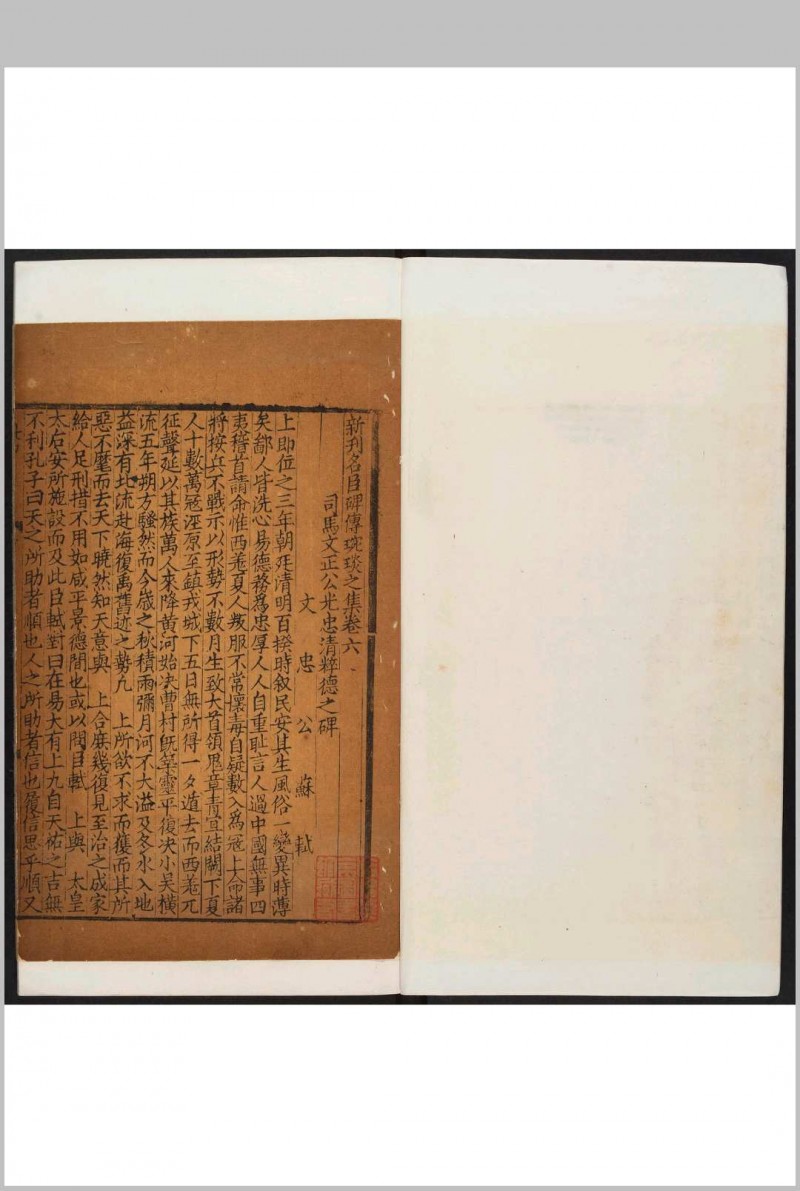 新刊名臣碑傳琬琰之集卷六
司馬文正公光忠清粹德之碑
文忠公蘇軾
上即位之三年朝廷清明百揆時叙民安其生風俗一變異時薄
夫鄙人皆洗心易德務為忠厚人人自重耻言人過中國無事四
夷稽首請命惟西羌夏人叛服不常懷毒自疑數入為冦上命諸
將按兵不戰示以形勢不數月生致大首領鬼章青宜結闕下夏
人十數萬冦涇原至鎮戎城下五日無所得一夕遁去而西羌兀
征聲延以其族萬人來降黃河始决曹村既築靈平復决小吳橫
流五年朔方騷然而今歲之秋積雨彌月河不大溢及冬水入地
益深有北流赴海復禹舊迹之勢凢 上所欲不求而獲而其所
惡不麾而去天下曉然知天意與 上合庶幾復見至治之成家
給人足刑措不用如咸平景德間也或以問臣軾 上與 太皇
太后安所施設而及此臣軾對曰在易大有上九自天祐之吉無
不利孔子曰天之所助者順也人之所助者信也履信思乎順又